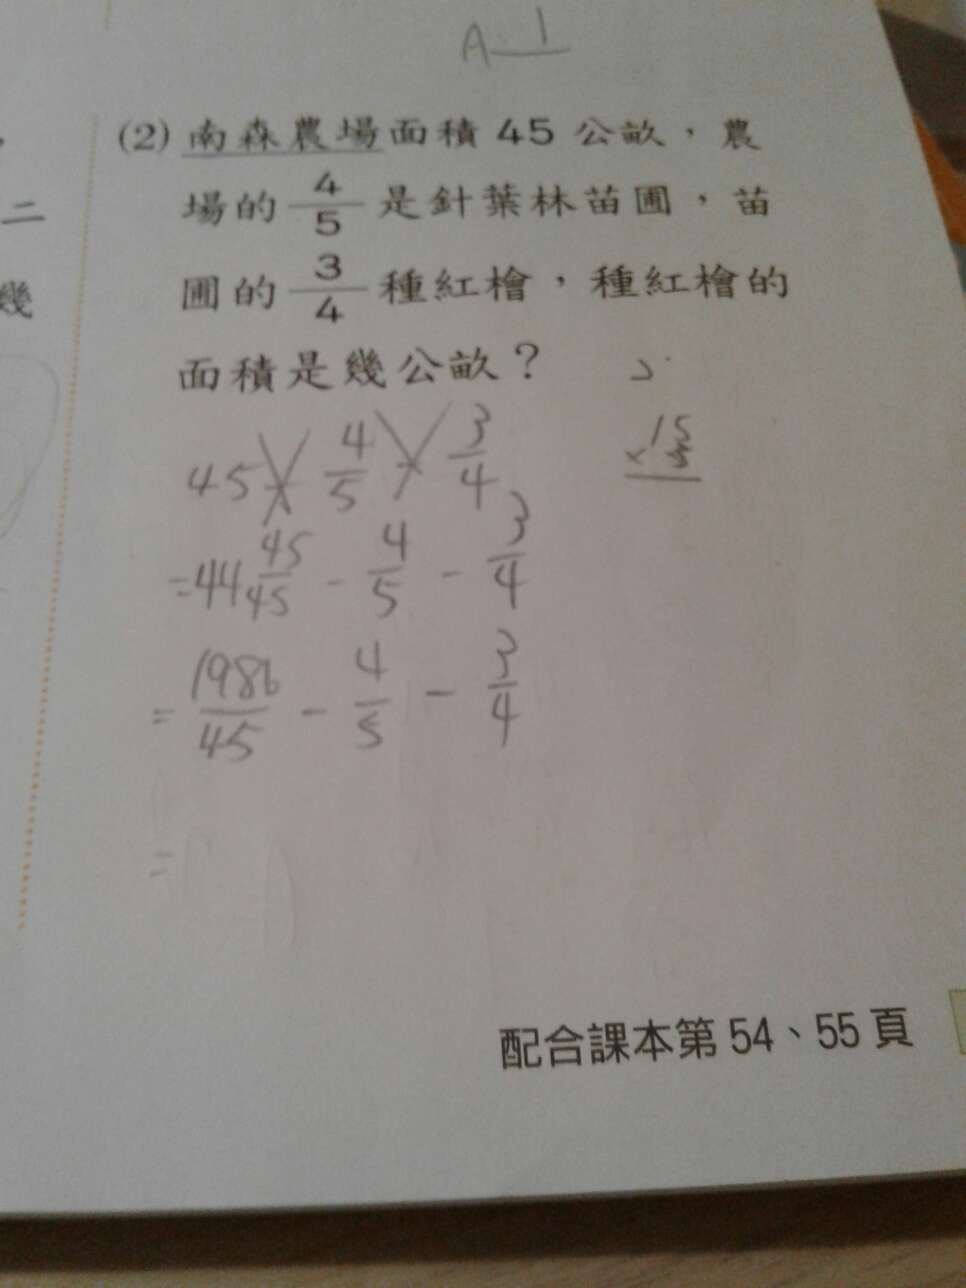 A 1
(2) 南森農場面積 45 公畝，農
二
場的 4/5 是針葉林苗圃，苗
幾
圃的 3/4 種紅檜，種紅檜的
面積是幾公畝？
45 × 4/5 × 3/4
15
× 3
= 44 45/45 - 4/5 - 3/4
= 198/45 - 4/5 - 3/4
=
配合課本第 54、55 頁